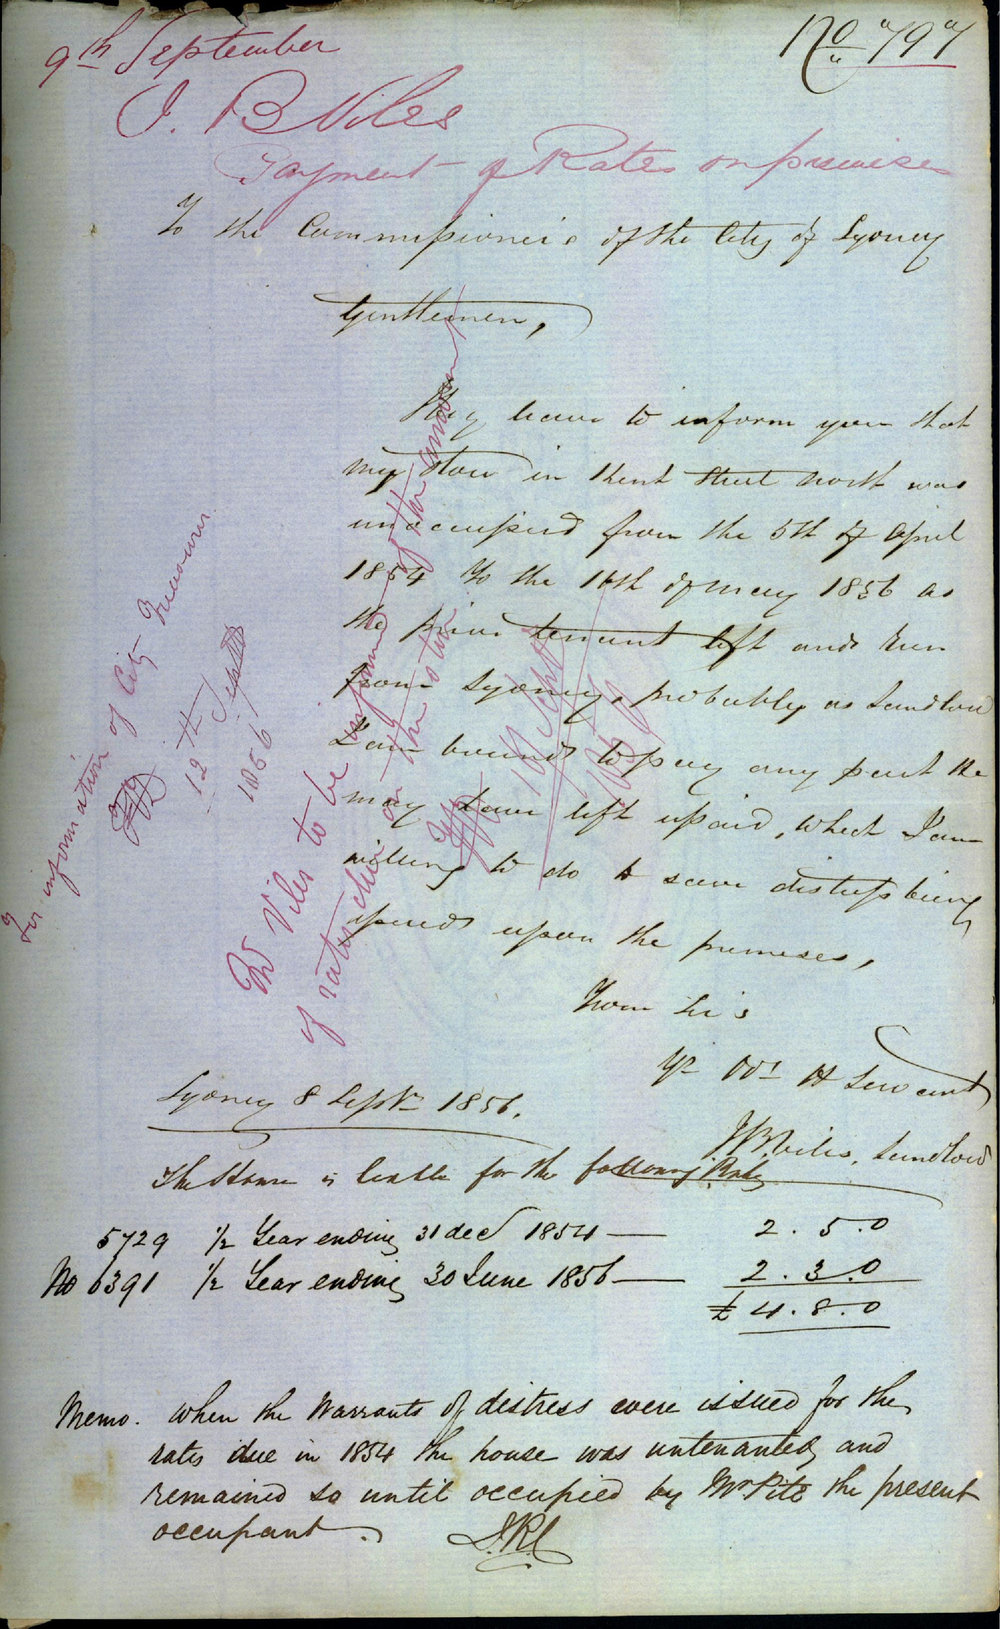 No "797"
9th September
J. B Viles
Payment of Rates on premises
To the Commissioners of the City of Sydney
Gentlemen,
I beg leave to inform you that
my store in Kent Street North was
unoccupied from the 5th of April
1854 To the 16th of may 1856 as
the prior tenant left and run
from Sydney, probably as Landlord
I am bound to pay any part he
may have left upaid, which I am
willing to do to save distress being
upon the premises,
From Sirs
Yr Obt H Servant
J B Viles, Landlord
Sydney 8 Septr 1856.
The House is liable for the following Rates
5729 ½ Year ending 31 decr 1854 — 2 . 5 . 0
No 6391 ½ Year ending 30 June 1856 — 2 . 3 . 0
£ 4 . 8 . 0
Memo. when the Warrants of distress were issued for the
rates due in 1854 the house was untenanted and
remained so until occupied by Mr Pite the present
occupant.
For information of City Treasurer
12th Septr
1856
Mr Viles to be informed of the amount
of rates due on the store
11 Sept
1856